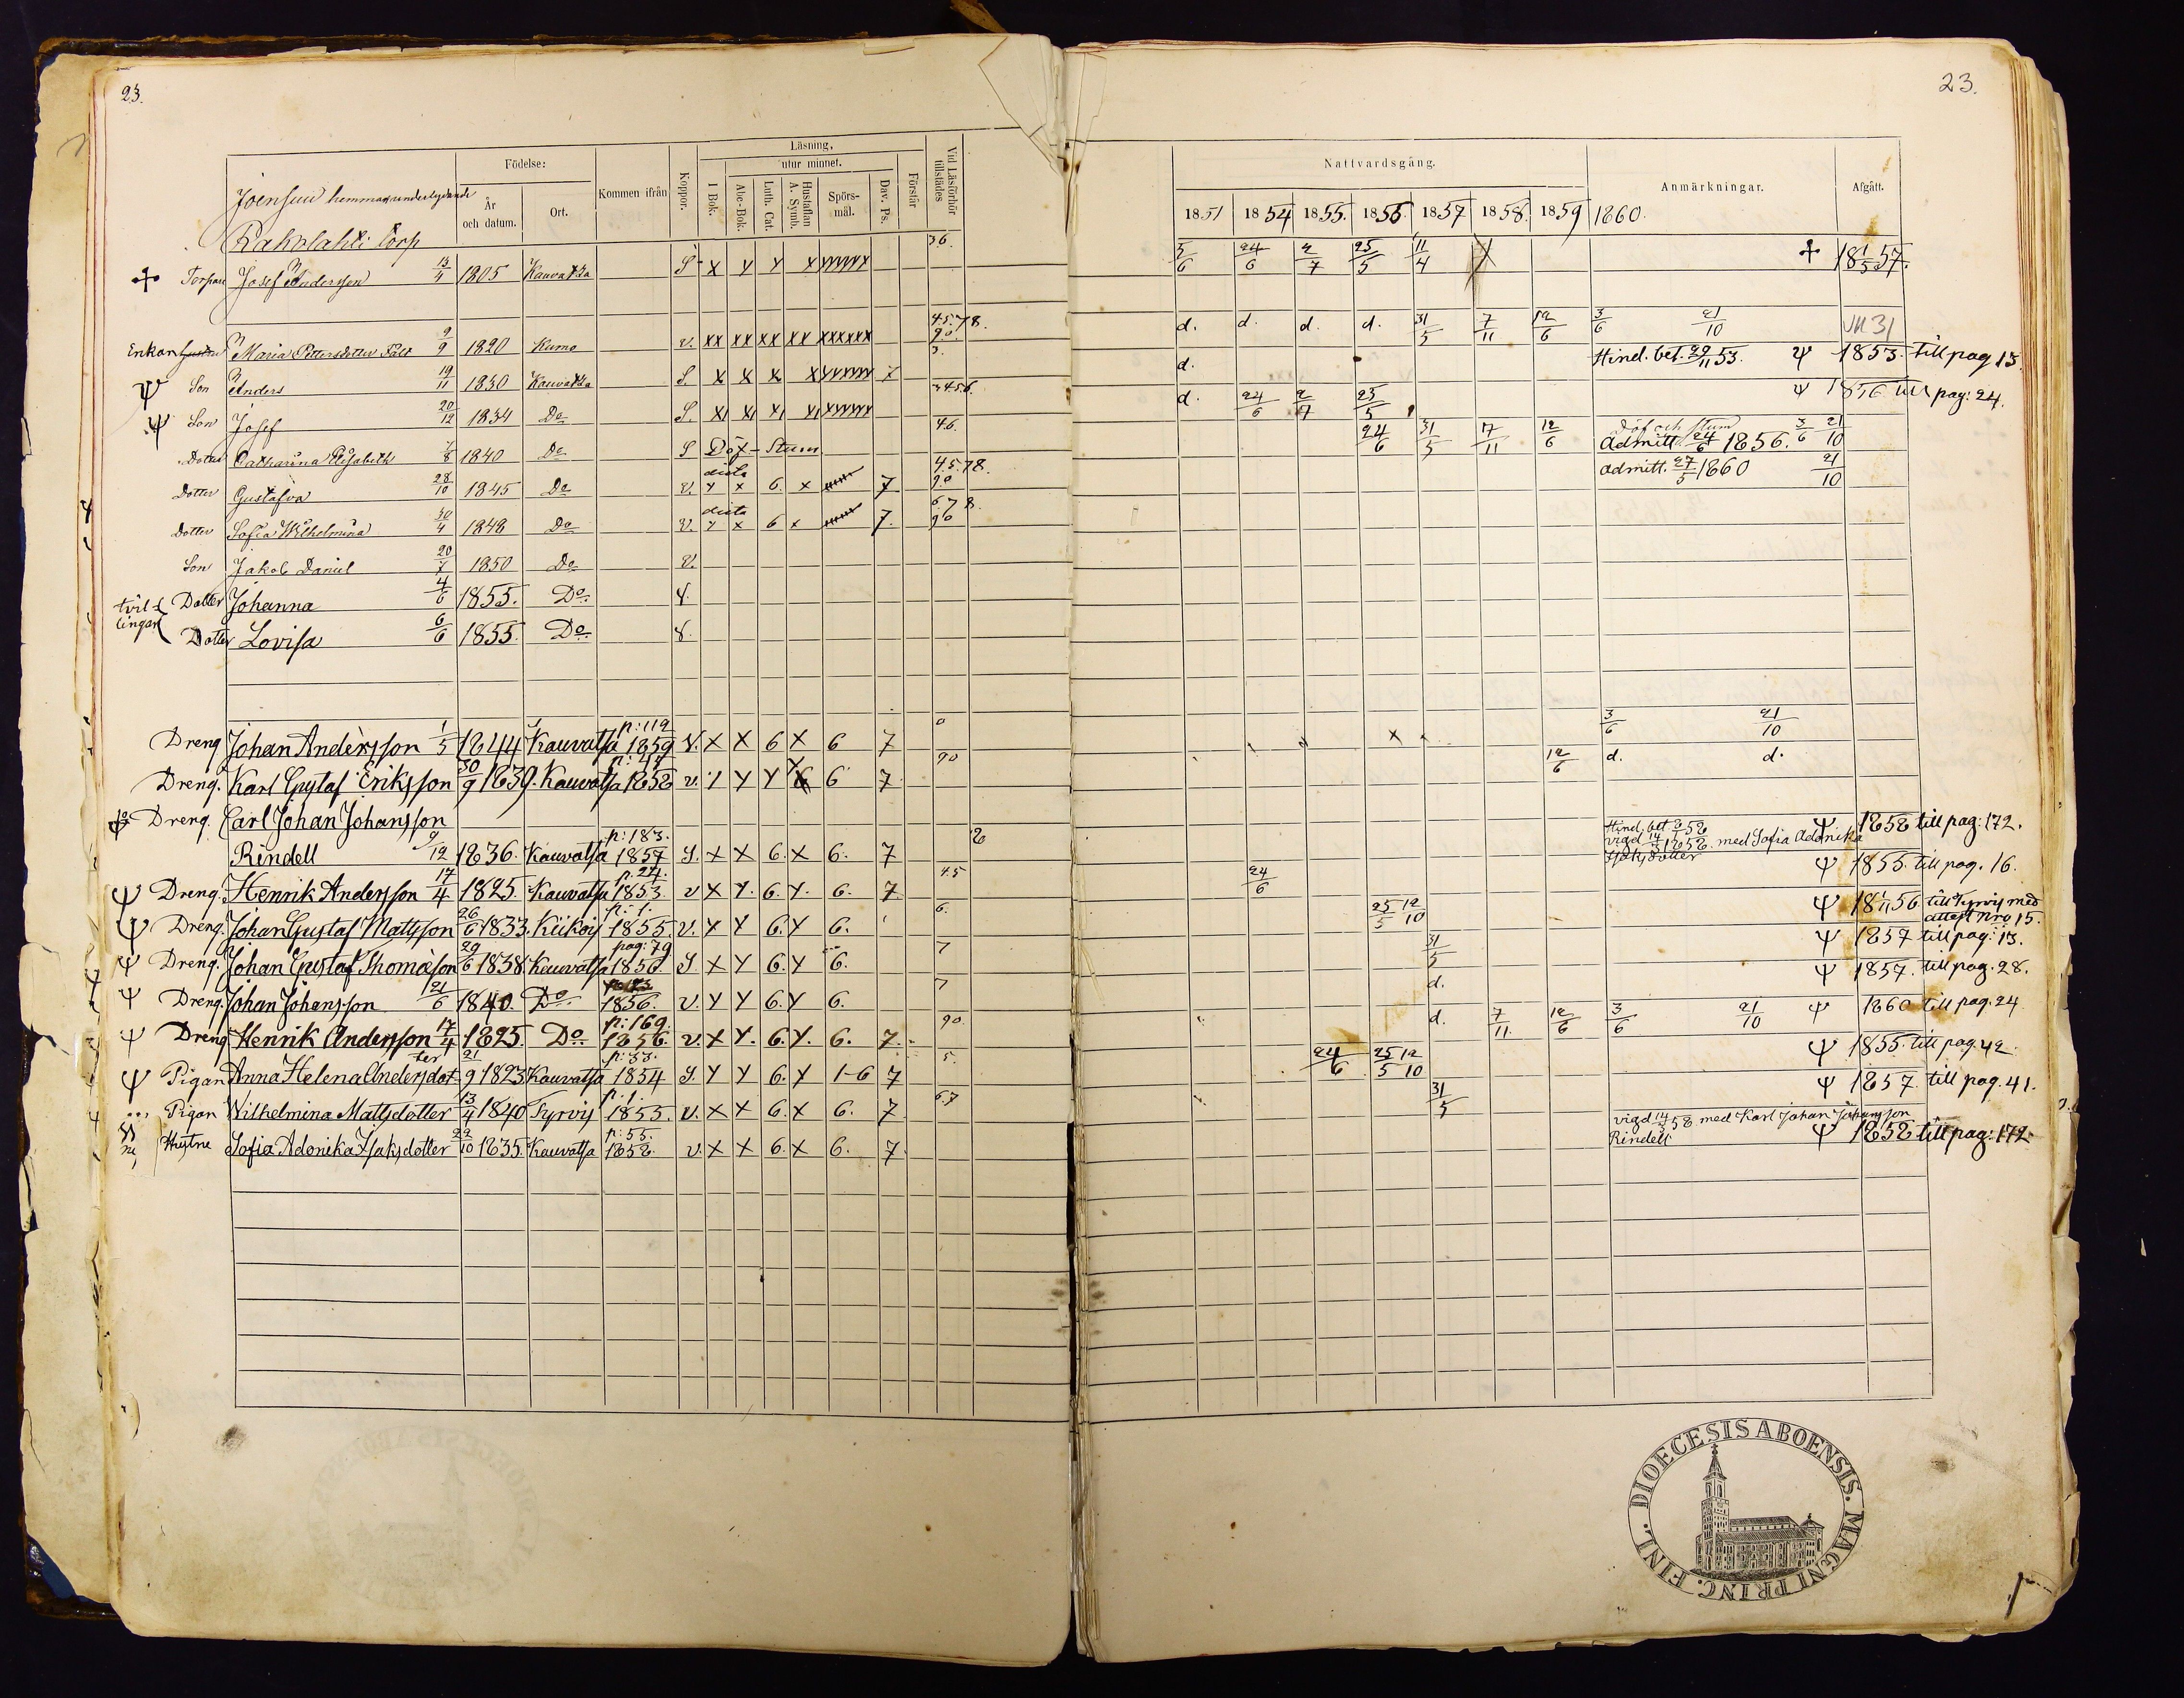 23.
23.
Joensuu hemman underlydande
Raholahti Torp
Födelse:
År och datum.
Ort.
Kommen ifrån
Koppor.
Läsning,
I Bok.
utur minnet.
Abc-Bok.
Luth. Cat.
Hustaflan A. Symb.
Spörs-mål.
Dav. Ps.
Förstår
Vid Läsförhör tillstädes
Nattvardsgång.
1851 1854 1855. 1856. 1857 1858. 1859 1860.
Anmärkningar.
Afgått.
Torpare Josef Andersson 13/4 1805 Kauvatsa S x y y x xxxxxx 3.6. 5/6 24/6 2/7 25/5 11/4 18 1/5 57.
Enkan Maria Pettersdotter Fält 9/9 1820 Kumo v. xx xx xx xx xxxxxx 4.5.7.8. 9.0. d. d. d. d. 31/5 7/11 12/6 3/6 21/10 VII 31
Ψ Son Anders 19/11 1830 Kauvatsa S. x x x x xxxxxx x 3. d. Hind. bet. 29/11 53. Ψ 1853. till pag 13.
Ψ Son Josef 20/12 1834 Do S. x x x x xxxxxx 3.4.5.6. d. 24/6 2/7 25/5 Ψ 1856 till pag: 24.
Dotter Catharina Elisabeth 1840 Do S Döf-Stum 4.6. 24/6 31/5 7/11 12/6 Döf och stum admitt. 24/6 1856. 3/6 21/10
Dotter Gustafva 28/10 1845 Do v. x x 6. x 7 4.5.7.8. 9.0 admitt. 27/5 1860 21/10
Dotter Sofia Wilhelmina 30/4 1848 Do v. x x 6 x 7. 6.7.8. 9.0
Son Jakob Daniel 1850 Do v.
tvillingar
Dotter Johanna 4/6 1855. Do
Dotter Lovisa 6/6 1855. Do
Dreng Johan Andersson 1/5 1844 Kauvatsa p: 119 1859 v. x x 6 x 6 7 0 3/6 21/10
Dreng. Karl Gustaf Eriksson 30/9 1839. Kauvatsa 1858 v. y y 6 7 90 12/6 d. d.
Dreng. Carl Johan Johansson
Rindell 9/12 1836. Kauvatsa p: 183. 1857 S. x x 6. x 6. 7 8 vigd 14/3 1858. med Sofia Adonika Isaksdotter Ψ 1858 till pag: 172.
Ψ Dreng. Henrik Andersson 17/4 1825. Kauvatsa p. 24. 1853. v x y. 6. y. 6. 7. 4.5 24/6 Ψ 1855. till pag. 16.
Ψ Dreng. Johan Gustaf Mattsson 26/6 1833. Kiikois p: 1. 1855. v. x y 6. y 6. 6. 25/5 12/10 Ψ 18 1/11 56. till Tyrvis med attest Nro 15.
Ψ Dreng. Johan Gustaf Thomasson 29/6 1838. Kauvatsa pag: 79 1856. S. x y 6. y 6. 7 31/5 Ψ 1857 till pag: 13.
Ψ Dreng. Johan Johansson 21/6 1840. Do 1856. v. y y 6. y 6. 7 d. Ψ 1857. till pag. 28.
Ψ Dreng Henrik Andersson 17/4 1825. Do p: 169. 1856. v. x y. 6. y. 6. 7. 90 d. 7/11 12/6 3/6 21/10 Ψ 1860 till pag. 24
Ψ Pigan Anna Helena Andersdotter 21/9 1823 Kauvatsa p: 33. 1854 S. y y 6. y 1-6 7 5. 24/6 25/5 12/10 Ψ 1855. till pag. 42.
Pigan Wilhelmina Mattsdotter 13/4 1840 Tyrvis p: 1. 1853. v. x x 6. x 6. 7 6.7 31/5 Ψ 1857. till pag. 41.
Hustru Sofia Adonika Isaksdotter 29/10 1835. Kauvatsa p: 55. 1858. v. x x 6. x 6. 7. vigd 14/3 58 med Karl Johan Johansson Rindell Ψ 1858 till pag: 172.
DIOECESIS ABOENSIS. MAGNI PRINC. FINL.